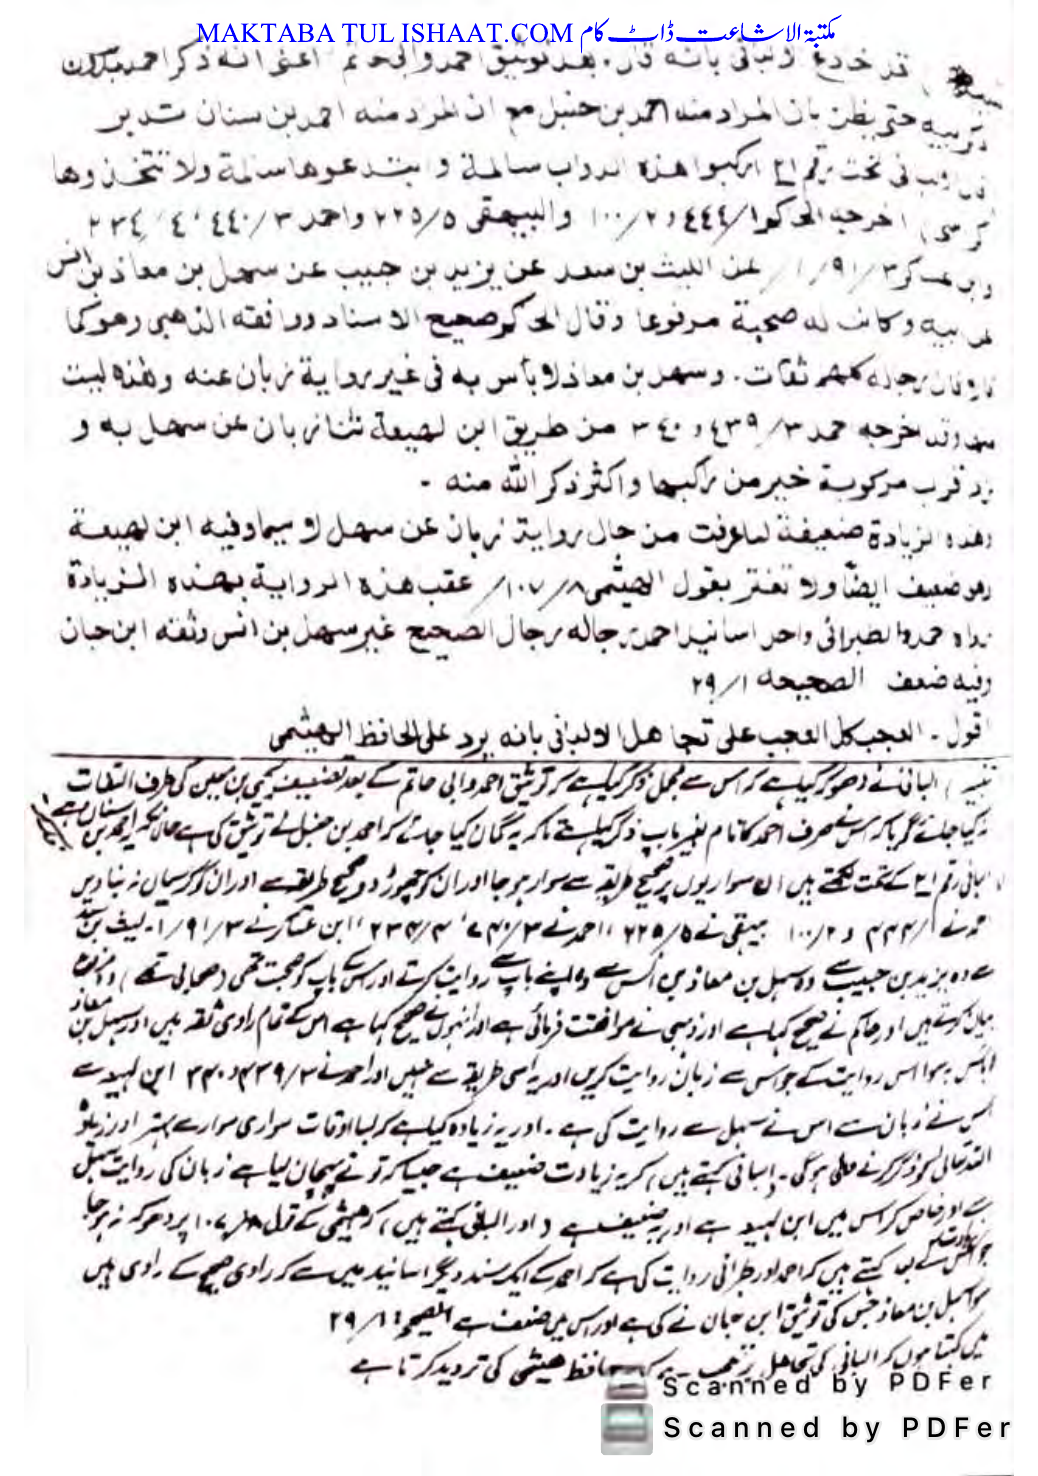 MAKTABA TUL ISHAAT.COM مکتبۃ الاشاعت ڈاٹ کام
قد خادع الالبانی بانه قال. بعد توثیق احمد وابی حاتم اعنی انه ذکر احمد
حتی یظن بان المراد منه احمد بن حنبل مع ان المراد منه احمد بن سنان تدبر
تحت رقم ٢١ ارکبوا هذه الدواب سالمة و ابتدعوها سالمة ولا تتخذوها
کرسی) اخرجه الحاکم ١/٤٤٤ و ٢/١٠٠ والبیهقی ٥/٢٢٥ واحمد ٣/٤٤٠، ٤/٢٣٤
وابن عساکر ٣/٩١/١/ عن اللیث بن سعد عن یزید بن حبیب عن سهل بن معاذ بن انس
عن ابیه وکانت له صحبة مرفوعا وقال الحاکم صحیح الاسناد ووافقه الذهبی وهو کما
قالا فان رجاله کلهم ثقات. وسهل بن معاذ لا بأس به فی غیر روایة زبان عنه وهذه لیست
منها وقد اخرجه احمد ٣/٤٣٩ و ٣٤٠ من طریق ابن لهیعة ثنا زبان عن سهل به و
زاد فرب مرکوبة خیر من راکبها واکثر ذکر الله منه -
وهذه الزیادة ضعیفة لما عرفت من حال روایة زبان عن سهل لا سیما وفیه ابن لهیعة
وهو ضعیف ایضًا ولا تغتر بقول الهیثمی ٨/١٠٧/ عقب هذه الروایة بهذه الزیادة
رواه احمد والطبرانی واحد اسانید احمد رجاله رجال الصحیح غیر سهل بن انس وثقه ابن حبان
وفیه ضعف الصحیحه ١/٢٩
اقول - العجب کل العجب علی تجاهل الالبانی بانه یرد علی الحافظ الهیثمی
تنبیہ) البانی نے دھوکہ کیا ہے کہ اس سے مجمل ذکر کیا ہے کہ توثیق احمد وابی حاتم کے بعد تضعیف یحیی بن معین کی طرف التفات
نہ کیا جائے گویا کہ اس نے صرف احمد کا نام بغیر باپ ذکر کیا ہے تاکہ یہ گمان کیا جائے کہ احمد بن حنبل نے توثیق کی ہے حالانکہ احمد بن سنان ہے
البانی رقم ٢١ کے تحت لکھتے ہیں ان سواریوں پر صحیح طریقہ سے سوار ہو جا اور ان کو چھوڑ دو صحیح طریقے سے اور ان کو کرسیاں نہ بنا دیں
١/٤٤٤ و ٢/١٠٠ بیہقی نے ٥/٢٢٥، احمد نے ٣/٤٤٠، ٤/٢٣٤، ابن عساکر نے ٣/٩١/١- لیث بن سعد
سے وہ یزید بن حبیب سے وہ سہل بن معاذ بن انس سے وہ اپنے باپ سے روایت کرتے اور اس کے باپ کو صحبت تھی (صحابی تھے)
بیان کرتے ہیں اور حاکم نے صحیح کہا ہے اور ذہبی نے موافقت فرمائی ہے اور انہوں نے صحیح کہا ہے اس کے تمام راوی ثقہ ہیں اور سہل بن معاذ
لا بأس بہ سوا اس روایت کے جو اس سے زبان روایت کریں اور یہ اسی طریقے سے نہیں اور احمد نے ٣/٤٣٩، ٣٤٠ ابن لہیعہ سے
اس نے زبان سے اس نے سہل سے روایت کی ہے۔ اور یہ زیادہ کیا ہے کہ بسا اوقات سواری سوار سے بہتر اور زیادہ
اللہ تعالی کو ذکر کرنے والی ہوگی۔ البانی کہتے ہیں، کہ یہ زیادت ضعیف ہے جیسا کہ تو نے پہچان لیا ہے زبان کی روایت سہل
سے اور خاص کر اس میں ابن لہیعہ ہے اور یہ ضعیف ہے (اور البانی کہتے ہیں، کہ ہیثمی کے قول ٨/١٠٧ پر دھوکہ نہ ہو جا
جو اس روایت کے بعد کہتے ہیں کہ احمد اور طبرانی روایت کی ہے کہ احمد کے ایک سند دیگر اسانید میں سے کہ راوی صحیح کے راوی ہیں
سوا سہل بن معاذ جس کی توثیق ابن حبان نے کی ہے اور اس میں ضعف ہے الصحیحہ ١/٢٩
میں کہتا ہوں کہ البانی کی تجاہل پر تعجب ہے کہ حافظ ہیثمی کی تردید کرتا ہے
Scanned by PDFer
Scanned by PDFer